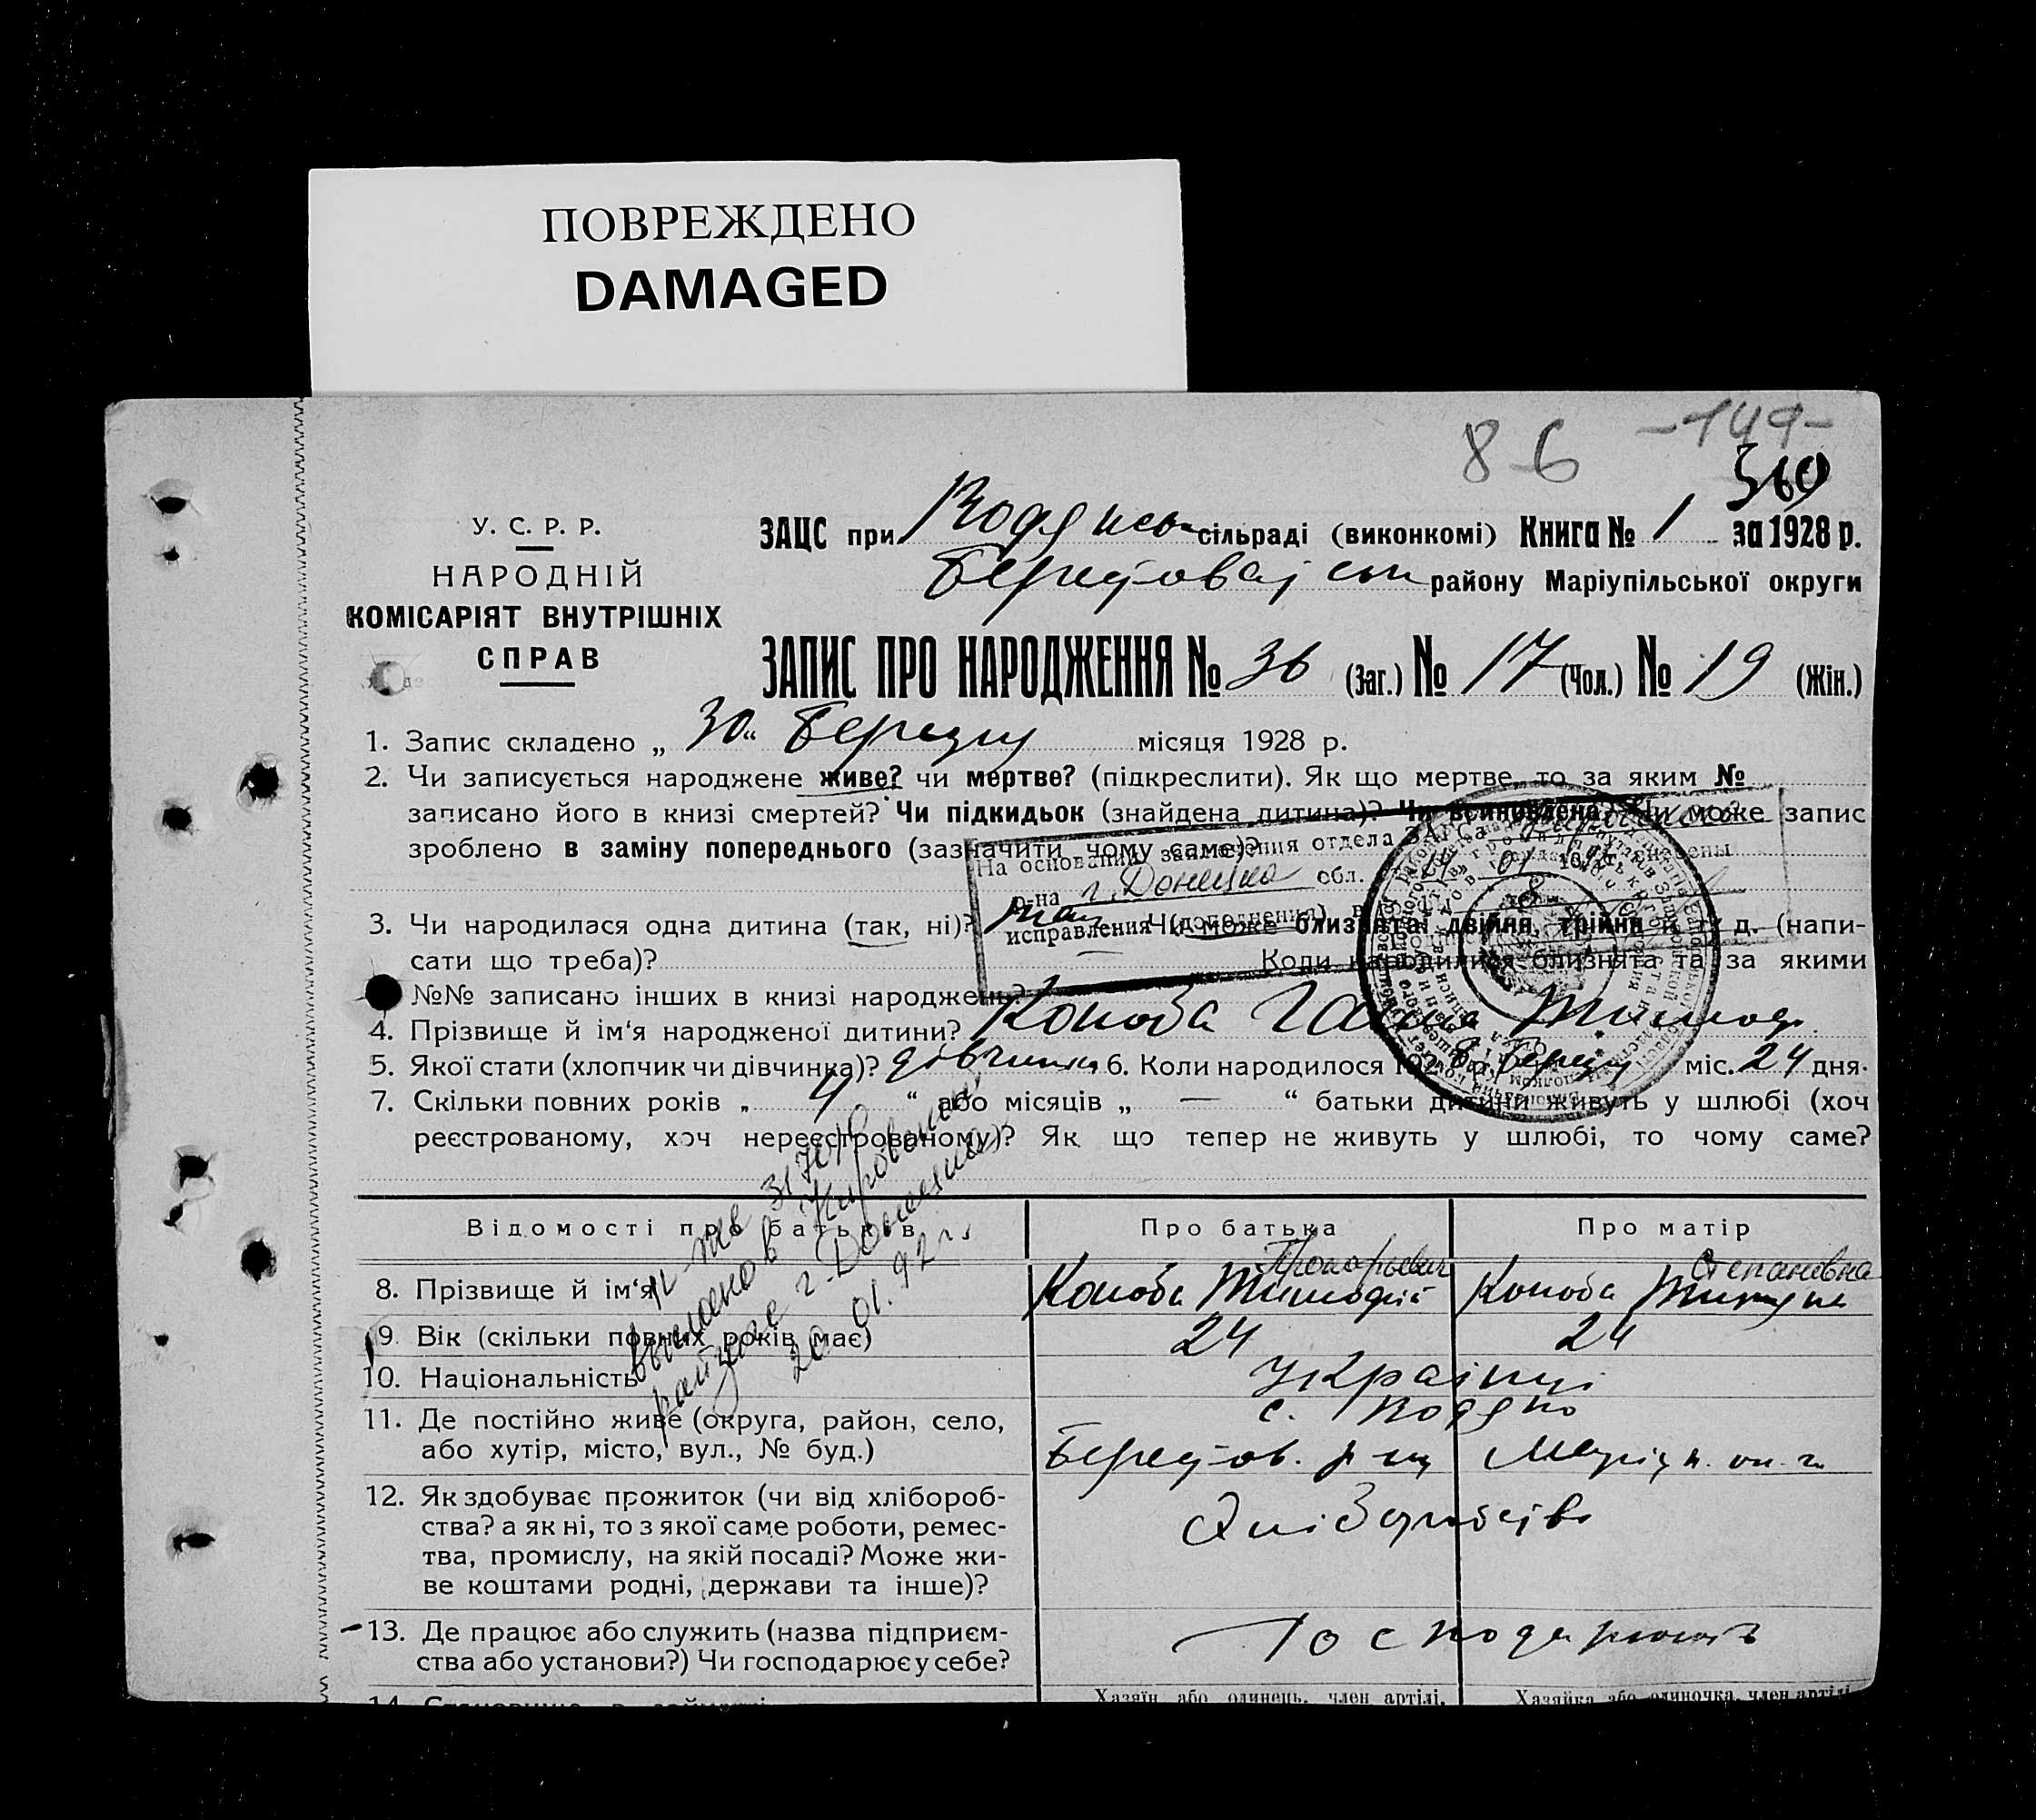 ПОВРЕЖДЕНО
DAMAGED
86 -149-
360
У. С. Р. Р.
НАРОДНІЙ
КОМІСАРІЯТ ВНУТРІШНІХ
СПРАВ
ЗАЦС при Водянсь сільраді (виконкомі) Книга № 1 за 1928 р.
району Маріупільської округи
ЗАПИС ПРО НАРОДЖЕННЯ № 36 (Заг.) № 17 (Чол.) № 19 (Жін.)
1. Запис складено „ 30 “ Березня місяця 1928 р.
2. Чи записується народжене живе? чи мертве? (підкреслити). Як що мертве, то за яким №
записано його в книзі смертей? Чи підкидьок (знайдена дитина)? Чи всиновлена? Чи може запис
зроблено в заміну попереднього (зазначити чому саме)?
На основании заключения отдела ЗАГСа
р-на г. Донецка обл.
исправления (дополнения)
3. Чи народилася одна дитина (так, ні)? так Чи може близнята, двійня, трійня й т. д. (напи-
сати що треба)? — Коли народилися близнята та за якими
№№ записано інших в книзі народжень?
4. Прізвище й ім‘я народженої дитини? Коноба Тимоф.
5. Якої стати (хлопчик чи дівчинка)? дівчинка 6. Коли народилося 192 8 р. Березня міс. 24 дня.
7. Скільки повних років „ 4 “ або місяців „ — “ батьки дитини живуть у шлюбі (хоч
реєстрованому, хоч нереєстрованому)? Як що тепер не живуть у шлюбі, то чому саме?
Відомості про батьків Про батька Про матір
Прокофьевич Степановна
8. Прізвище й ім‘я Коноба Тимофій Коноба
9. Вік (скільки повних років має) 24 24
10. Національність Українці
11. Де постійно живе (округа, район, село, с. Водяно
або хутір, місто, вул., № буд.) Маріуп. ок-ги
12. Як здобуває прожиток (чи від хлібороб-
ства? а як ні, то з якої саме роботи, ремес- Хліборобство
тва, промислу, на якій посаді? Може жи-
ве коштами родні, держави та інше)?
13. Де працює або служить (назва підприєм- Господарюють
ства або установи?) Чи господарює у себе?
Хазяїн або одинець, член артілі, Хазяйка або одиночка, член артілі
выдано в Кировским
райзагсе г. Донецка
20. 01. 92 г.